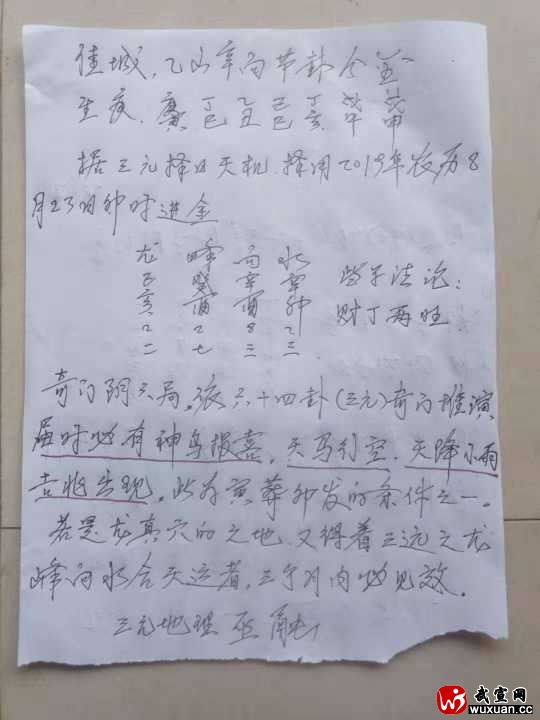 佳城，乙山辛向节卦分金
生
丁 乙 己 丁
巳 丑 巳 亥
据三元择日天机，择用2019年农历8
月23日卯时进金
龙 峰 向 水
己 癸 辛 辛
亥 酉 酉 卯
二 七 三 三
些子法论：
财丁两旺
奇门阴六局，依六十四卦(三元)奇门推演
届时必有神鸟报喜，天马行空，天降小雨
吉兆出现，此为寅葬卯发的条件之一。
若是龙真穴的之地，又得着三远之龙
峰向水合天运者，三个月内必见效。
三元地理
武宣网
wuxuan.cc